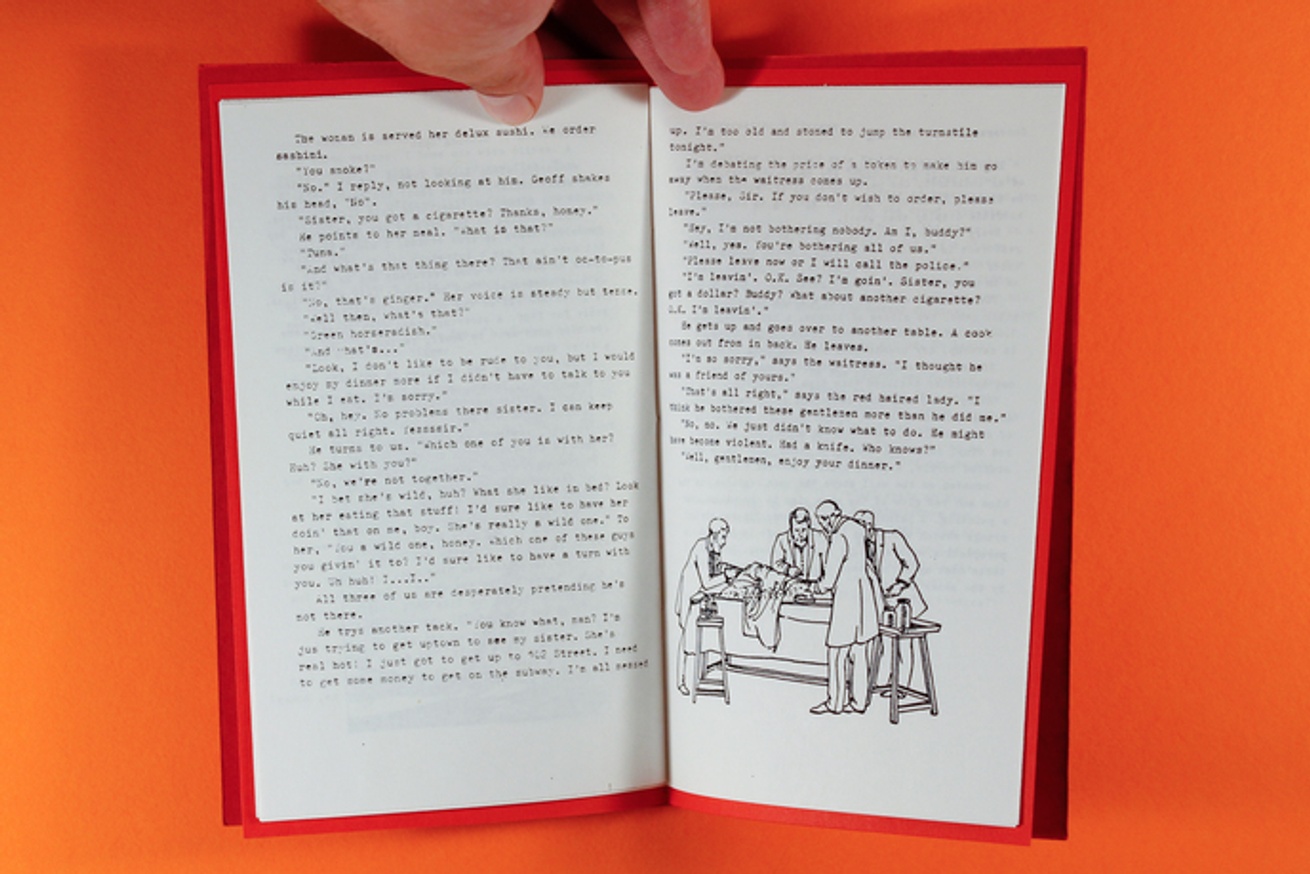 The woman is served her delux sushi. We order
sashimi.
"You smoke?"
"No." I reply, not looking at him. Geoff shakes
his head, "No".
"Sister, you got a cigarette? Thanks, honey."
He points to her meal. "What is that?"
"Tuna."
"And what's that thing there? That ain't oc-to-pus
is it?"
"No, that's ginger." Her voice is steady but tense.
"Well then, what's that?"
"Green horseradish."
"And what's..."
"Look, I don't like to be rude to you, but I would
enjoy my dinner more if I didn't have to talk to you
while I eat. I'm sorry."
"Oh, hey. No problems there sister. I can keep
quiet all right. Yesssir."
He turns to us. "Which one of you is with her?
Huh? She with you?"
"No, we're not together."
"I bet she's wild, huh? What she like in bed? Look
at her eating that stuff! I'd sure like to have her
doin' that on me, boy. She's really a wild one." To
her, "You a wild one, honey. Which one of these guys
you givin' it to? I'd sure like to have a turn with
you. Uh huh! I...I.."
All three of us are desperately pretending he's
not there.
He trys another tack. "You know what, man? I'm
jus trying to get uptown to see my sister. She's
real hot! I just got to get up to Street. I need
to get some money to get on the subway. I'm all messed
up. I'm too old and stoned to jump the turnstile
tonight."
I'm debating the price of a token to make him go
away when the waitress comes up.
"Please, Sir. If you don't wish to order, please
leave."
"Hey, I'm not bothering nobody. Am I, buddy?"
"Well, yes. You're bothering all of us."
"Please leave now or I will call the police."
"I'm leavin'. O.K. See? I'm goin'. Sister, you
got a dollar? Buddy? What about another cigarette?
O.K. I'm leavin'."
He gets up and goes over to another table. A cook
comes out from in back. He leaves.
"I'm so sorry," says the waitress. "I thought he
was a friend of yours."
"That's all right," says the red haired lady. "I
think he bothered these gentlemen more than he did me."
"No, no. We just didn't know what to do. He might
have become violent. Had a knife. Who knows?"
"Well, gentlemen, enjoy your dinner."